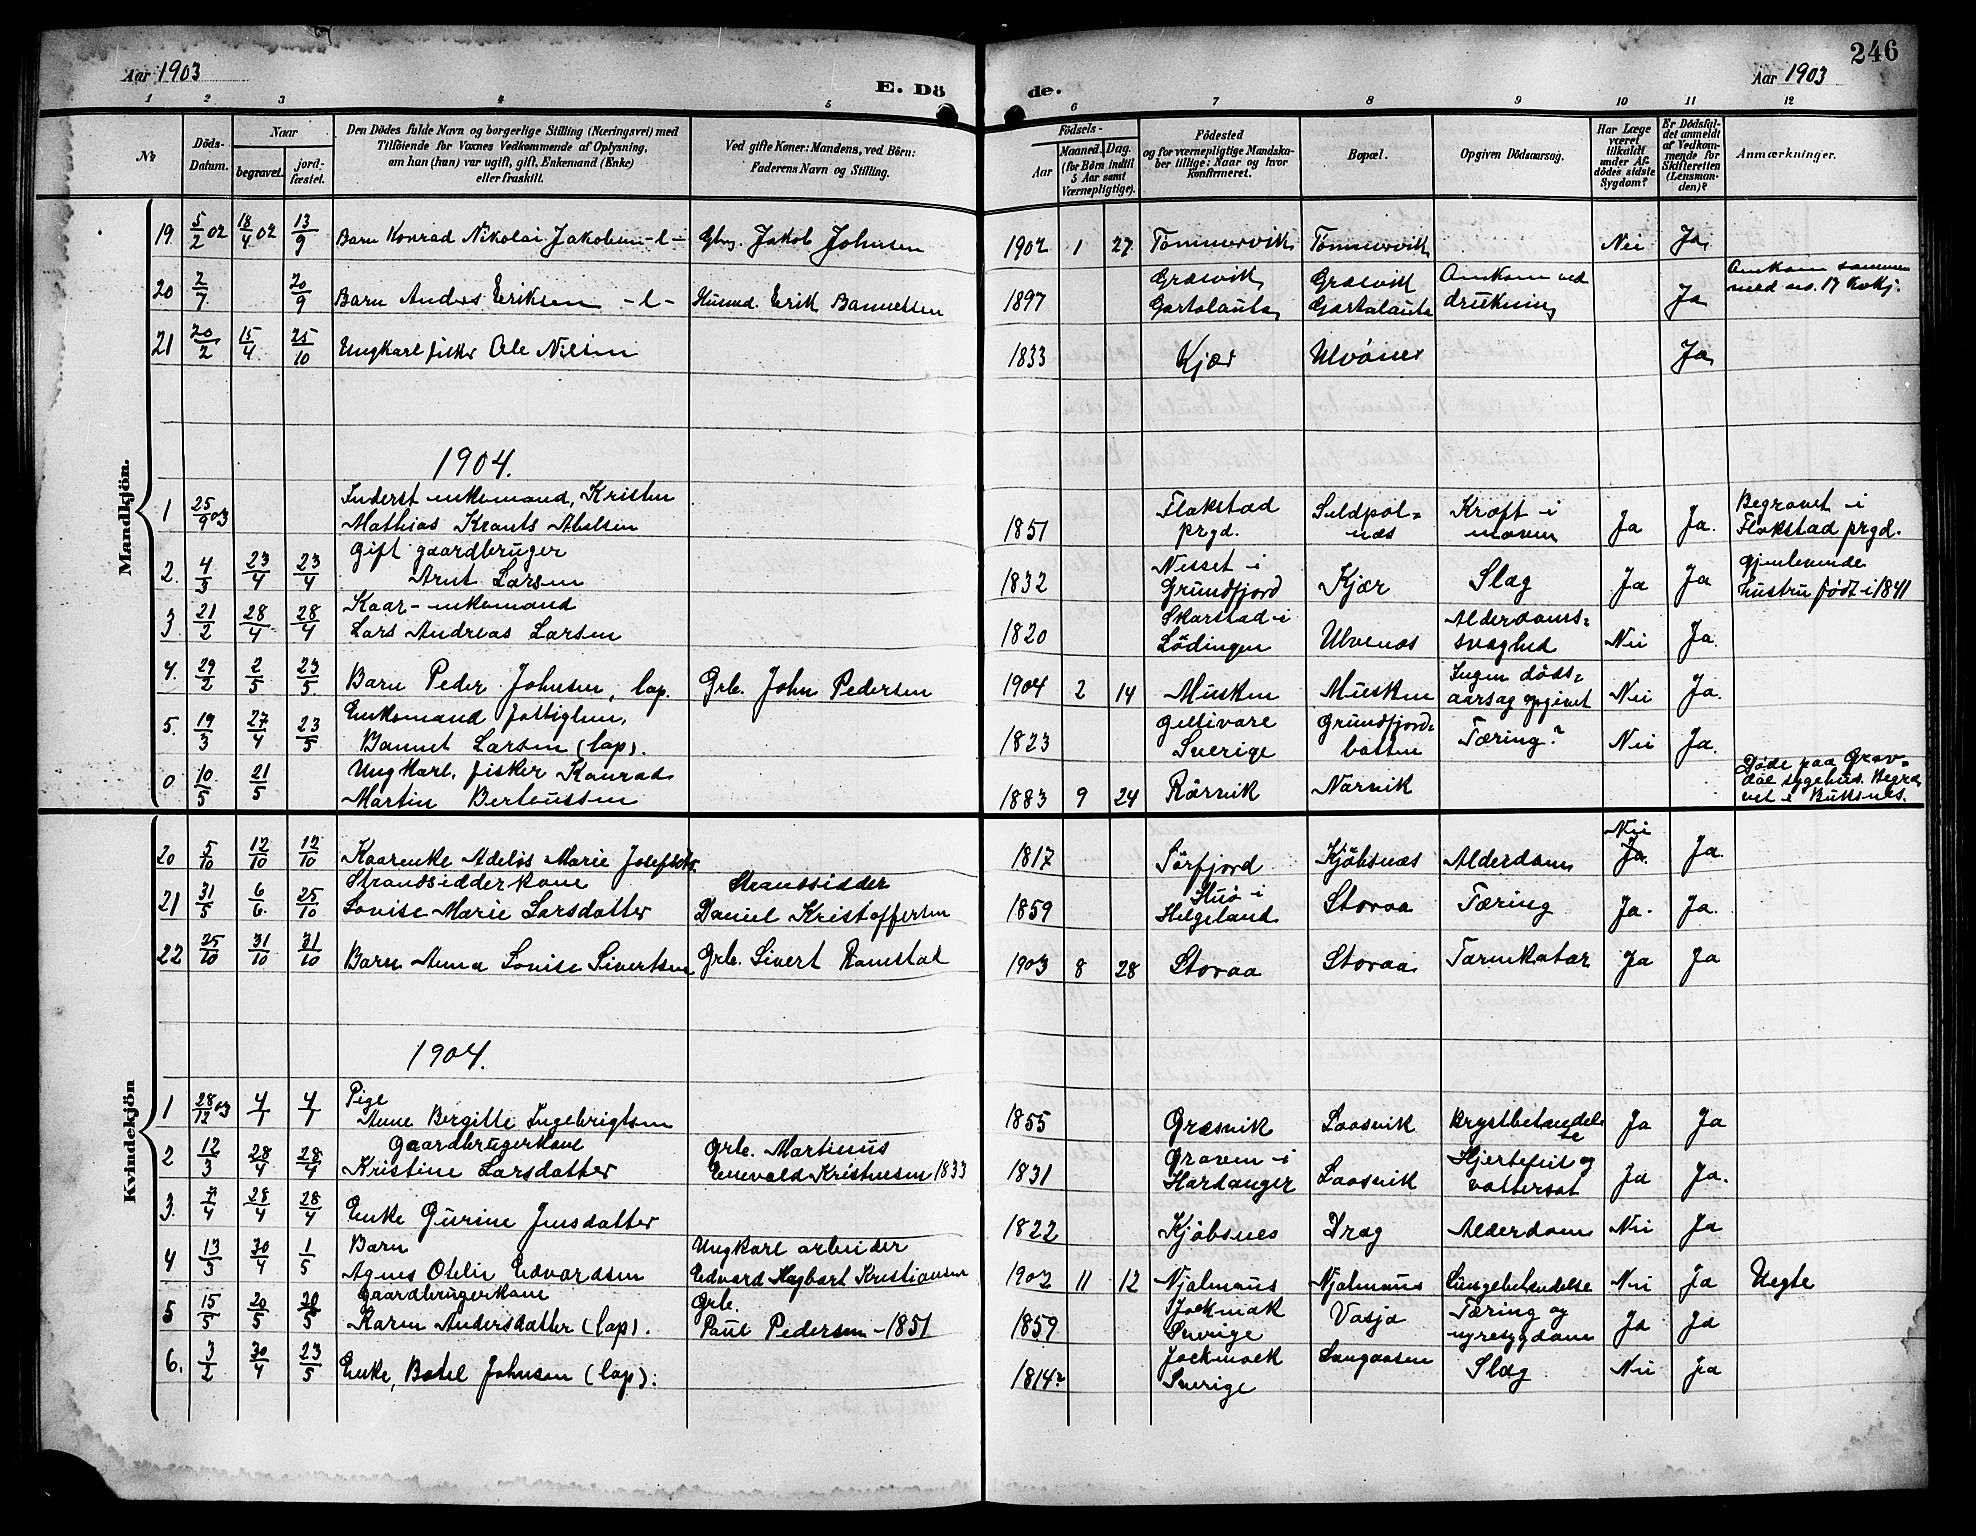 246
Aar 1903
E. Döde.
Aar 1903
1 2 3 4 5 6 7 8 9 10 11 12
No
Döds-Datum.
Naar
begravet.
jordfæstet.
Den Dödes fulde Navn og borgerlige Stilling (Næringsvei) med
Tilföiende for Voxnes Vedkommende af Oplysning,
om han (hun) var ugift, gift, Enkemand (Enke)
eller fraskilt.
Ved gifte Koner: Mandens, ved Börn:
Faderens Navn og Stilling.
Födsels-
Aar
Maaned. Dag.
(for Börn indtil
5 Aar samt
Værnepligtige).
Födested
og for værnepligtige Mandskaber tillige: Naar og hvor
konfirmeret.
Bopæl.
Opgiven Dödsaarsag.
Har Læge
været
tilkaldt
under Afdödes sidste
Sygdom?
Er Dödsfaldet anmeldt
af Vedkommende for
Skifteretten
(Lensmanden)?
Anmærkninger.
Mandkjön.
19 5/2 02 18/4 02 13/9 Barn Konrad Nikolai Jakobsen -l- Gbrg. Jakob Johnsen 1902 1 27 Tømmervik Tømmervik Nei Ja
20 2/7 20/9 Barn Anders Eriksen -l- Husmd. Erik 1897 Græsvik Græsvik Omkom ved drukning Ja Omkom sammen med no. 17 kvkj.
21 20/2 15/4 25/10 Ungkarl fisker Ole Nilsen 1833 Kjær Ulvönes Ja
1904.
1 25/9 03 Inderst enkemand, Kristen
Mathias Krants Abelsen 1851 Flakstad prgd. Kræft i maven Ja Ja. Begravet i Flakstad prgd.
2. 4/3 23/4 23/4 Gift gaardbruger
Arnt Larsen 1832 Nesset i Grundfjord Kjær Slag Ja Ja Gjenlevende hustru født i 1841
3 21/2 28/4 28/4 Kaar-enkemand
Lars Andreas Larsen 1820 Skarstad i Lødingen Ulvenæs Alderdomssvaghed Nei Ja.
4. 29/2 2/5 23/5 Barn Peder Johnsen, lap. Grb. John Pedersen 1904 2 14 Musken Musken Ingen dødsaarsag opgivet Nei Ja.
5. 19/3 27/4 23/5 Enkemand fattiglem,
Larsen (lap). 1823 Gellivare Sverige Grundfjordbotten Tæring? Nei Ja.
0 10/5 21/5 Ungkarl, fisker Konrad
Martin Berteussen 1883 9 24 Rørvik Narvik Døde paa Gravdal sygehus. Begravet i Buksnes.
Kvindekjön
20 5/10 12/10 12/10 Kaarenke Marie 1817 Sørfjord Kjøbsnæs Alderdom Nei Ja. Ja.
21 31/5 6/6. 25/10 Strandsidderkone
Lovise Marie Larsdatter Strandsidder
Daniel Kristoffersen 1859 i Helgeland Storaa Tæring Ja. Ja.
22 25/10 31/10 31/10 Barn Anna Lovise Sivertsen Grb. Sivert Ramstad 1903 8 28 Storaa Storaa Tarmkatar Ja Ja
1904.
1 28/12 03 4/1 4/1 Pige
Anne Bergitte Ingebrigtsen 1855 Græsvik Laasvik Brystbetændelse Ja Ja
2 12/3 28/4 28/4 Gaardbrugerkone
Kristine Larsdatter Grb. Martinus
Enevold Kristensen 1833 1831 Graven i Hardanger Laasvik Hjertefeil og vattersot Ja Ja.
3. 7/4 28/4 28/4 Enke Gurine Jensdatter 1822 Kjøbsnes Drag Alderdom Nei Ja
4 13/3 30/4 1/5 Barn
Agnes Otelie Edvardsen Ungkarl arbeider
Edvard Hagbart Kristiansen 1902 11 12 Njalmaus Njalmaus Lungebetændelse Nei Ja Uegte
5 15/5 20/5 20/5 Gaardbrugerkone
Karen Andersdatter (lap). Grb.
Paul Pedersen - 1851 1859 Jockmok Sverige Vasja Tæring og nyresygdom Ja Ja
6. 3/2 30/4 23/5 Enke, Botel Johnsen (lap). 1814? Jockmock Sverige Langaasen Slag Nei Ja